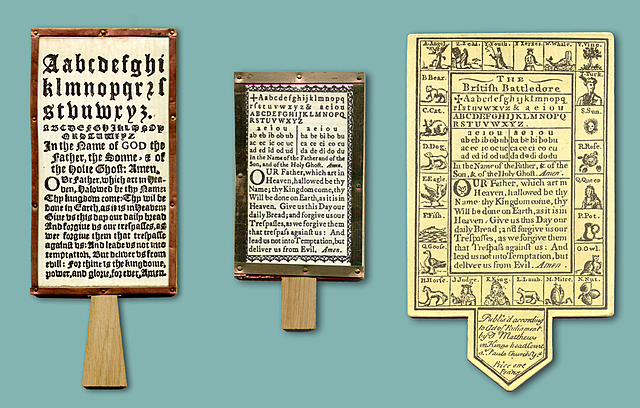 Aabcdefghi
klmnopqrzſ
stvbuwxyz.
ABCDEFGHIKLMNOP
QRSTUWXYZ
In the Name of GOD the
Father, the Sonne, & of
the Holie Ghost: Amen.
OVr Father, which art in Hea-
ven, Halowed be thy Name:
Thy kingdom come: Thy wil be
done in Earth, as it is in Heaven
Giue us this day our daily bread
And forgiue us our treſpaſſes, as
we forgiue them that treſpaſſe
againſt us: And leade us not into
temptation, But deliver us from
evill: For thine is the kingdome,
power, and glorie, for ever, Amen.
✠Aabcdefghijklmnopq
rſstuvwxyz& a e i o u
ABCDEFGHIJKLMNOPQ
RSTUVWXYZ
a e i o u | a e i o u
ab eb ib ob ub | ba be bi bo bu
ac ec ic oc uc | ca ce ci co cu
ad ed id od ud | da de di do du
In the Name of the Father and of the
Son, and of the Holy Ghost. Amen.
OUR Father, which art in
Heaven, hallowed be thy
Name; thy Kingdom come, thy
Will be done on Earth, as it is in
Heaven. Give us this Day our
daily Bread; and forgive us our
Treſpaſſes, as we forgive them
that treſpaſs againſt us: And
lead us not into Temptation, but
deliver us from Evil. Amen.
A. Angel. Z. Y. Youth. X. Xerxes. W. Whale. V. Vine.
B. Bear.
C. Cat.
D. Dog.
E. Eagle.
F. Fish.
G. Gooſe.
H. Horſe. I. Judge. K. King. L. Lamb. M. Mitre. N. Nut.
T. Turk.
S. Sun.
R. Roſe.
Q. Queen
P. Pot.
O. Owl.
THE
British Battledore
✠Aabcdefghijklmnopq
rſstuvwxyz& a e i o u
ABCDEFGHIJKLMNOPQ
RSTUVWXYZ.
a e i o u | a e i o u
ab eb ib ob ub | ba be bi bo bu
ac ec ic oc uc | ca ce ci co cu
ad ed id od ud | da de di do du
In the Name of the Father, & of the
Son, & of the Holy Ghost. Amen.
OUR Father, which art in
Heaven, hallowed be thy
Name; thy Kingdom come, thy
Will be done on Earth, as it is in
Heaven. Give us this Day our
daily Bread; and forgive us our
Treſpaſſes, as we forgive them
that Treſpaſs againſt us: And
lead us not into Temptation, but
deliver us from Evil. Amen.
Publiſ'd according
to Act of Parliament.
by T. Matthews
in Kings head Court
St. Pauls Church Yd.
Price one
Penny